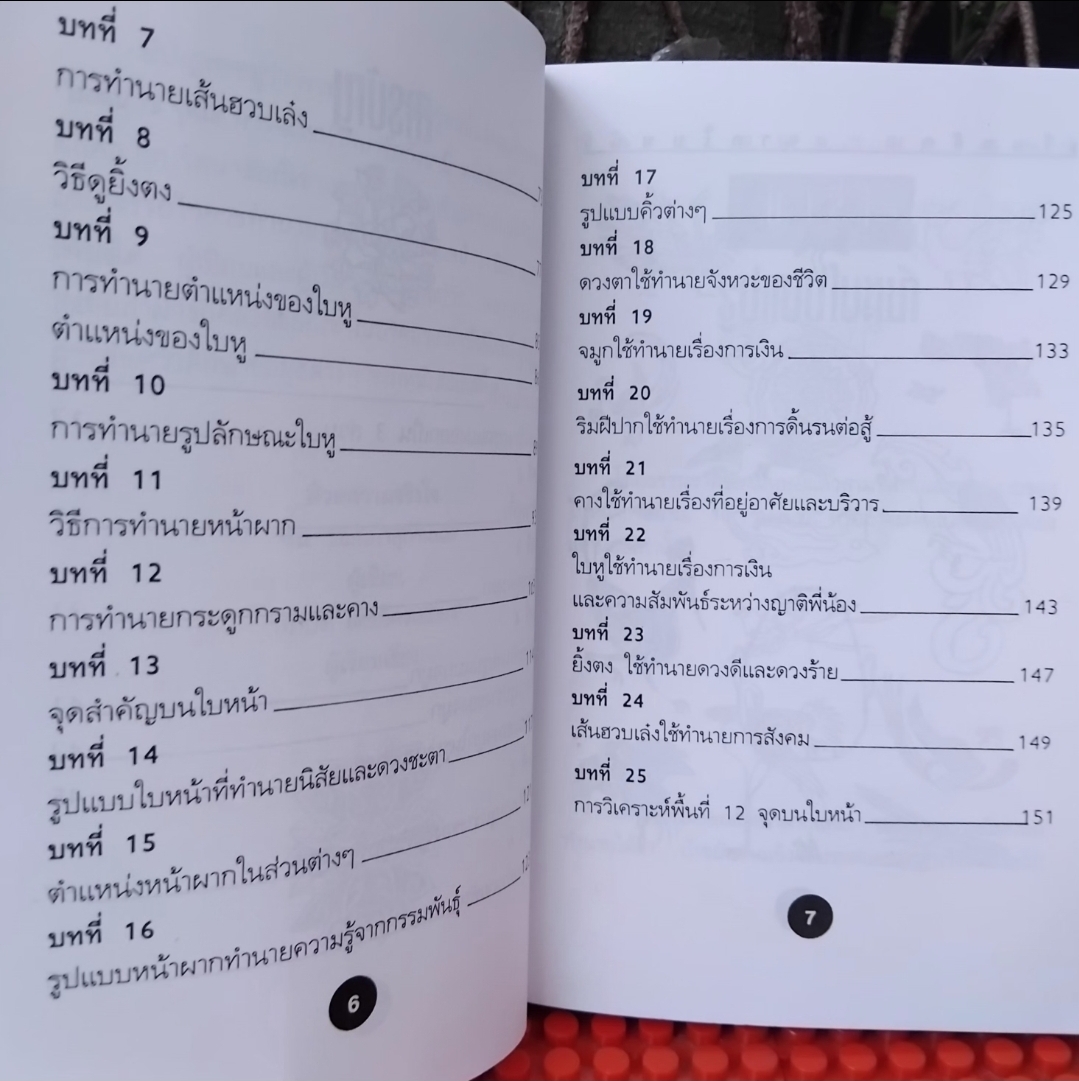 บทที่ 7
การทำนายเส้นฮวบเล่ง
บทที่ 8
วิธีดูยิ้งตง
บทที่ 9
การทำนายตำแหน่งของใบหู
ตำแหน่งของใบหู
บทที่ 10
การทำนายรูปลักษณะใบหู
บทที่ 11
วิธีการทำนายหน้าผาก
บทที่ 12
การทำนายกระดูกกรามและคาง
บทที่ 13
จุดสำคัญบนใบหน้า
บทที่ 14
รูปแบบใบหน้าที่ทำนายนิสัยและดวงชะตา
บทที่ 15
ตำแหน่งหน้าผากในส่วนต่างๆ
บทที่ 16
รูปแบบหน้าผากทำนายความรู้จากกรรมพันธุ์
6
บทที่ 17
รูปแบบคิ้วต่างๆ 125
บทที่ 18
ดวงตาใช้ทำนายจังหวะของชีวิต 129
บทที่ 19
จมูกใช้ทำนายเรื่องการเงิน 133
บทที่ 20
ริมฝีปากใช้ทำนายเรื่องการดิ้นรนต่อสู้ 135
บทที่ 21
คางใช้ทำนายเรื่องที่อยู่อาศัยและบริวาร 139
บทที่ 22
ใบหูใช้ทำนายเรื่องการเงิน
และความสัมพันธ์ระหว่างญาติพี่น้อง 143
บทที่ 23
ยิ้งตง ใช้ทำนายดวงดีและดวงร้าย 147
บทที่ 24
เส้นฮวบเล่งใช้ทำนายการสังคม 149
บทที่ 25
การวิเคราะห์พื้นที่ 12 จุดบนใบหน้า 151
7